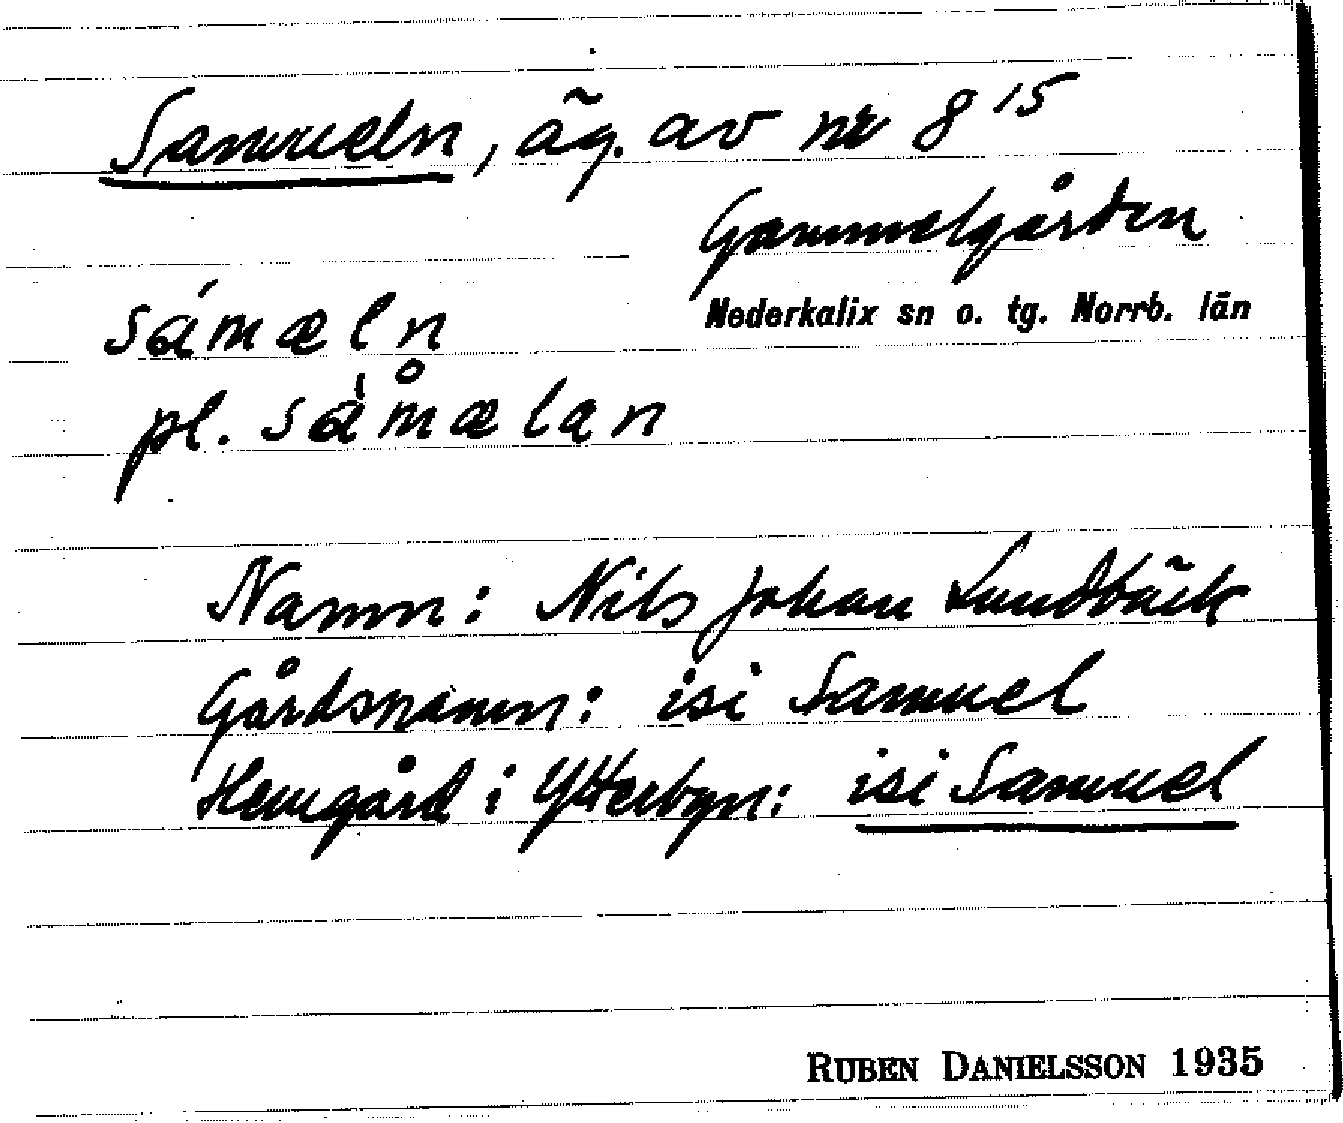 Samueln, äg. av nr 8 15
Gammelgården
Nederkalix sn o. tg. Norrb. län
sámæln
pl. sàm̊ælan
Namn: Nils Johan Lundbäck
Gårdsnamn: isi Samuel
Hemgård i Ytterbyn: isi Samuel
RUBEN DANIELSSON 1935